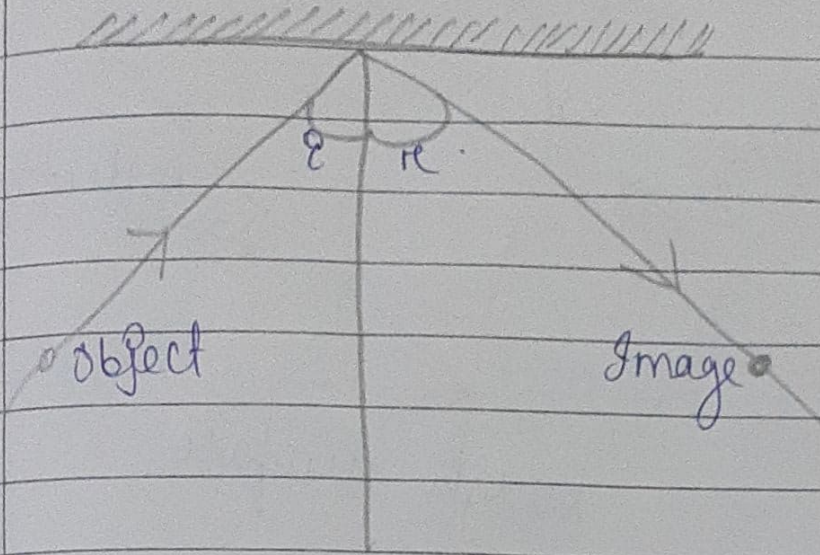 i r
Object Image